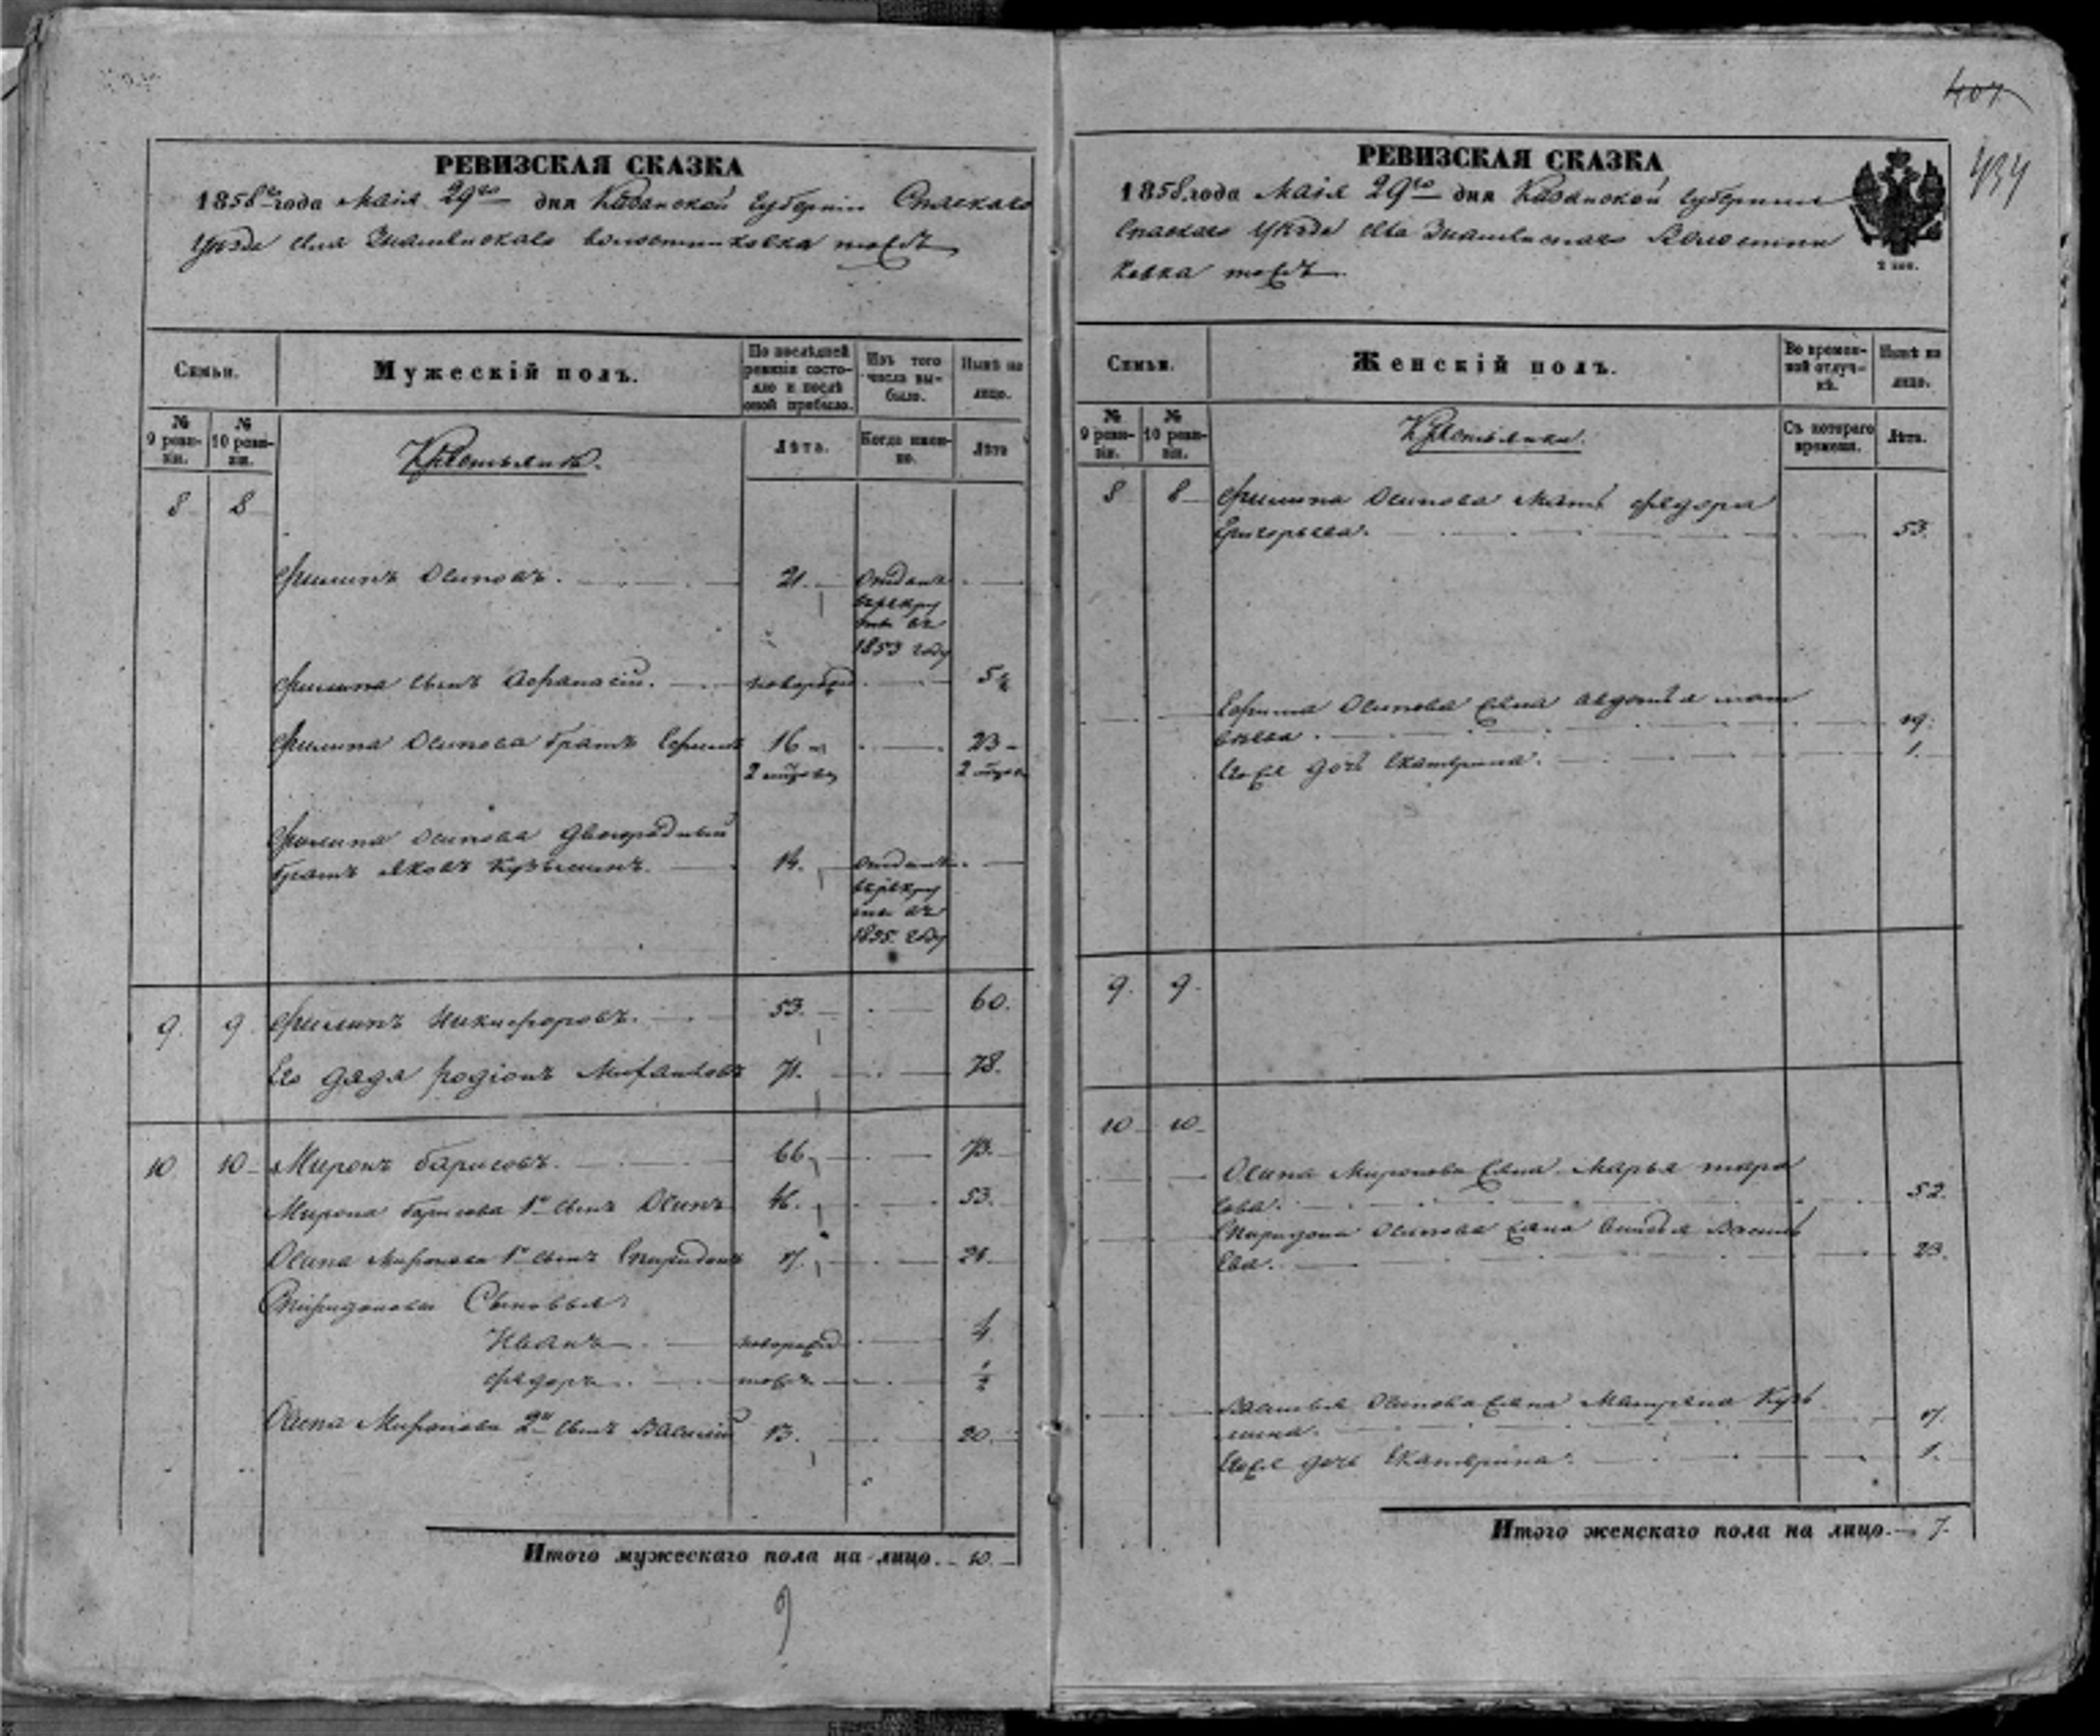 РЕВИЗСКАЯ СКАЗКА
1858го года Маія 29го дня Казанской Губерніи Спаскаго
Уѣзда села Знаменскаго Волостниковка тожъ
Семьи.
Мужескій полъ.
По послѣдней ревизіи состояло и послѣ оной прибыло.
Изъ того числа выбыло.
Нынѣ на лицо.
№ 9 ревизіи.
№ 10 ревизіи.
Крестьянѣ.
Лѣта.
Когда именно.
Лѣта
8 8
Филипъ Осиповъ. 21. отданъ
в рекру
ты въ
1853 году
Филипа сынъ Афанасій. новорожд. 5½
Филипа Осипова братъ Ефимъ 16 23
Филипа Осипова двоюродный
братъ Яковъ Кузьминъ. 14. отданъ
в рекру
ты въ
1855 году
9. 9. Филипъ Никифоровъ. 53. 60.
Его дядя Родіонъ 71. 78.
10 10 Миронъ Борисовъ. 66 73.
Мирона Борисова 1й сынъ Осипъ 46. 53.
Осипа Миронова 1й сынъ Спиридонъ 17. 24.
Спиридоновы Сыновья
Иванъ новорожд 4
Федоръ тожъ ½
Осипа Миронова 2й сынъ Василій 13. 20.
Итого мужескаго пола на лицо. 10.
9
407
434
РЕВИЗСКАЯ СКАЗКА
1858 года Маія 29го дня Казанской Губерніи
Спаскаго Уѣзда села Знаменскаго Волостни
ковка тожъ.
2 коп.
Семьи.
Женскій полъ.
Во временной отлучкѣ.
Нынѣ на лицо.
№ 9 ревизіи.
№ 10 ревизіи.
Крестьянки.
Съ котораго времени.
Лѣта.
8 8 Филипа Осипова мать Федора
Григорьева. 53.
Ефима Осипова жена Авдотья
19.
Ихъ дочь Екатерина. 1.
9. 9.
10 10
Осипа Миронова жена Марья Тара
сова. 52.
Спиридона Осипова жена Василь
ева. 23.
Василья Осипова жена Матрена Кузь
мина. 17.
дочь Екатерина. 1.
Итого женскаго пола на лицо. 7.